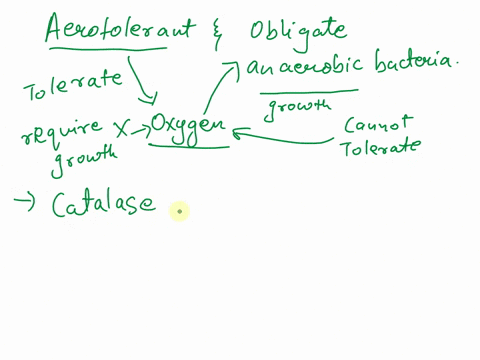 Aerotolerant & Obligate
anaerobic bacteria.
Tolerate
growth
rEquire X → Oxygen
growth
Cannot
Tolerate
→ Catalase